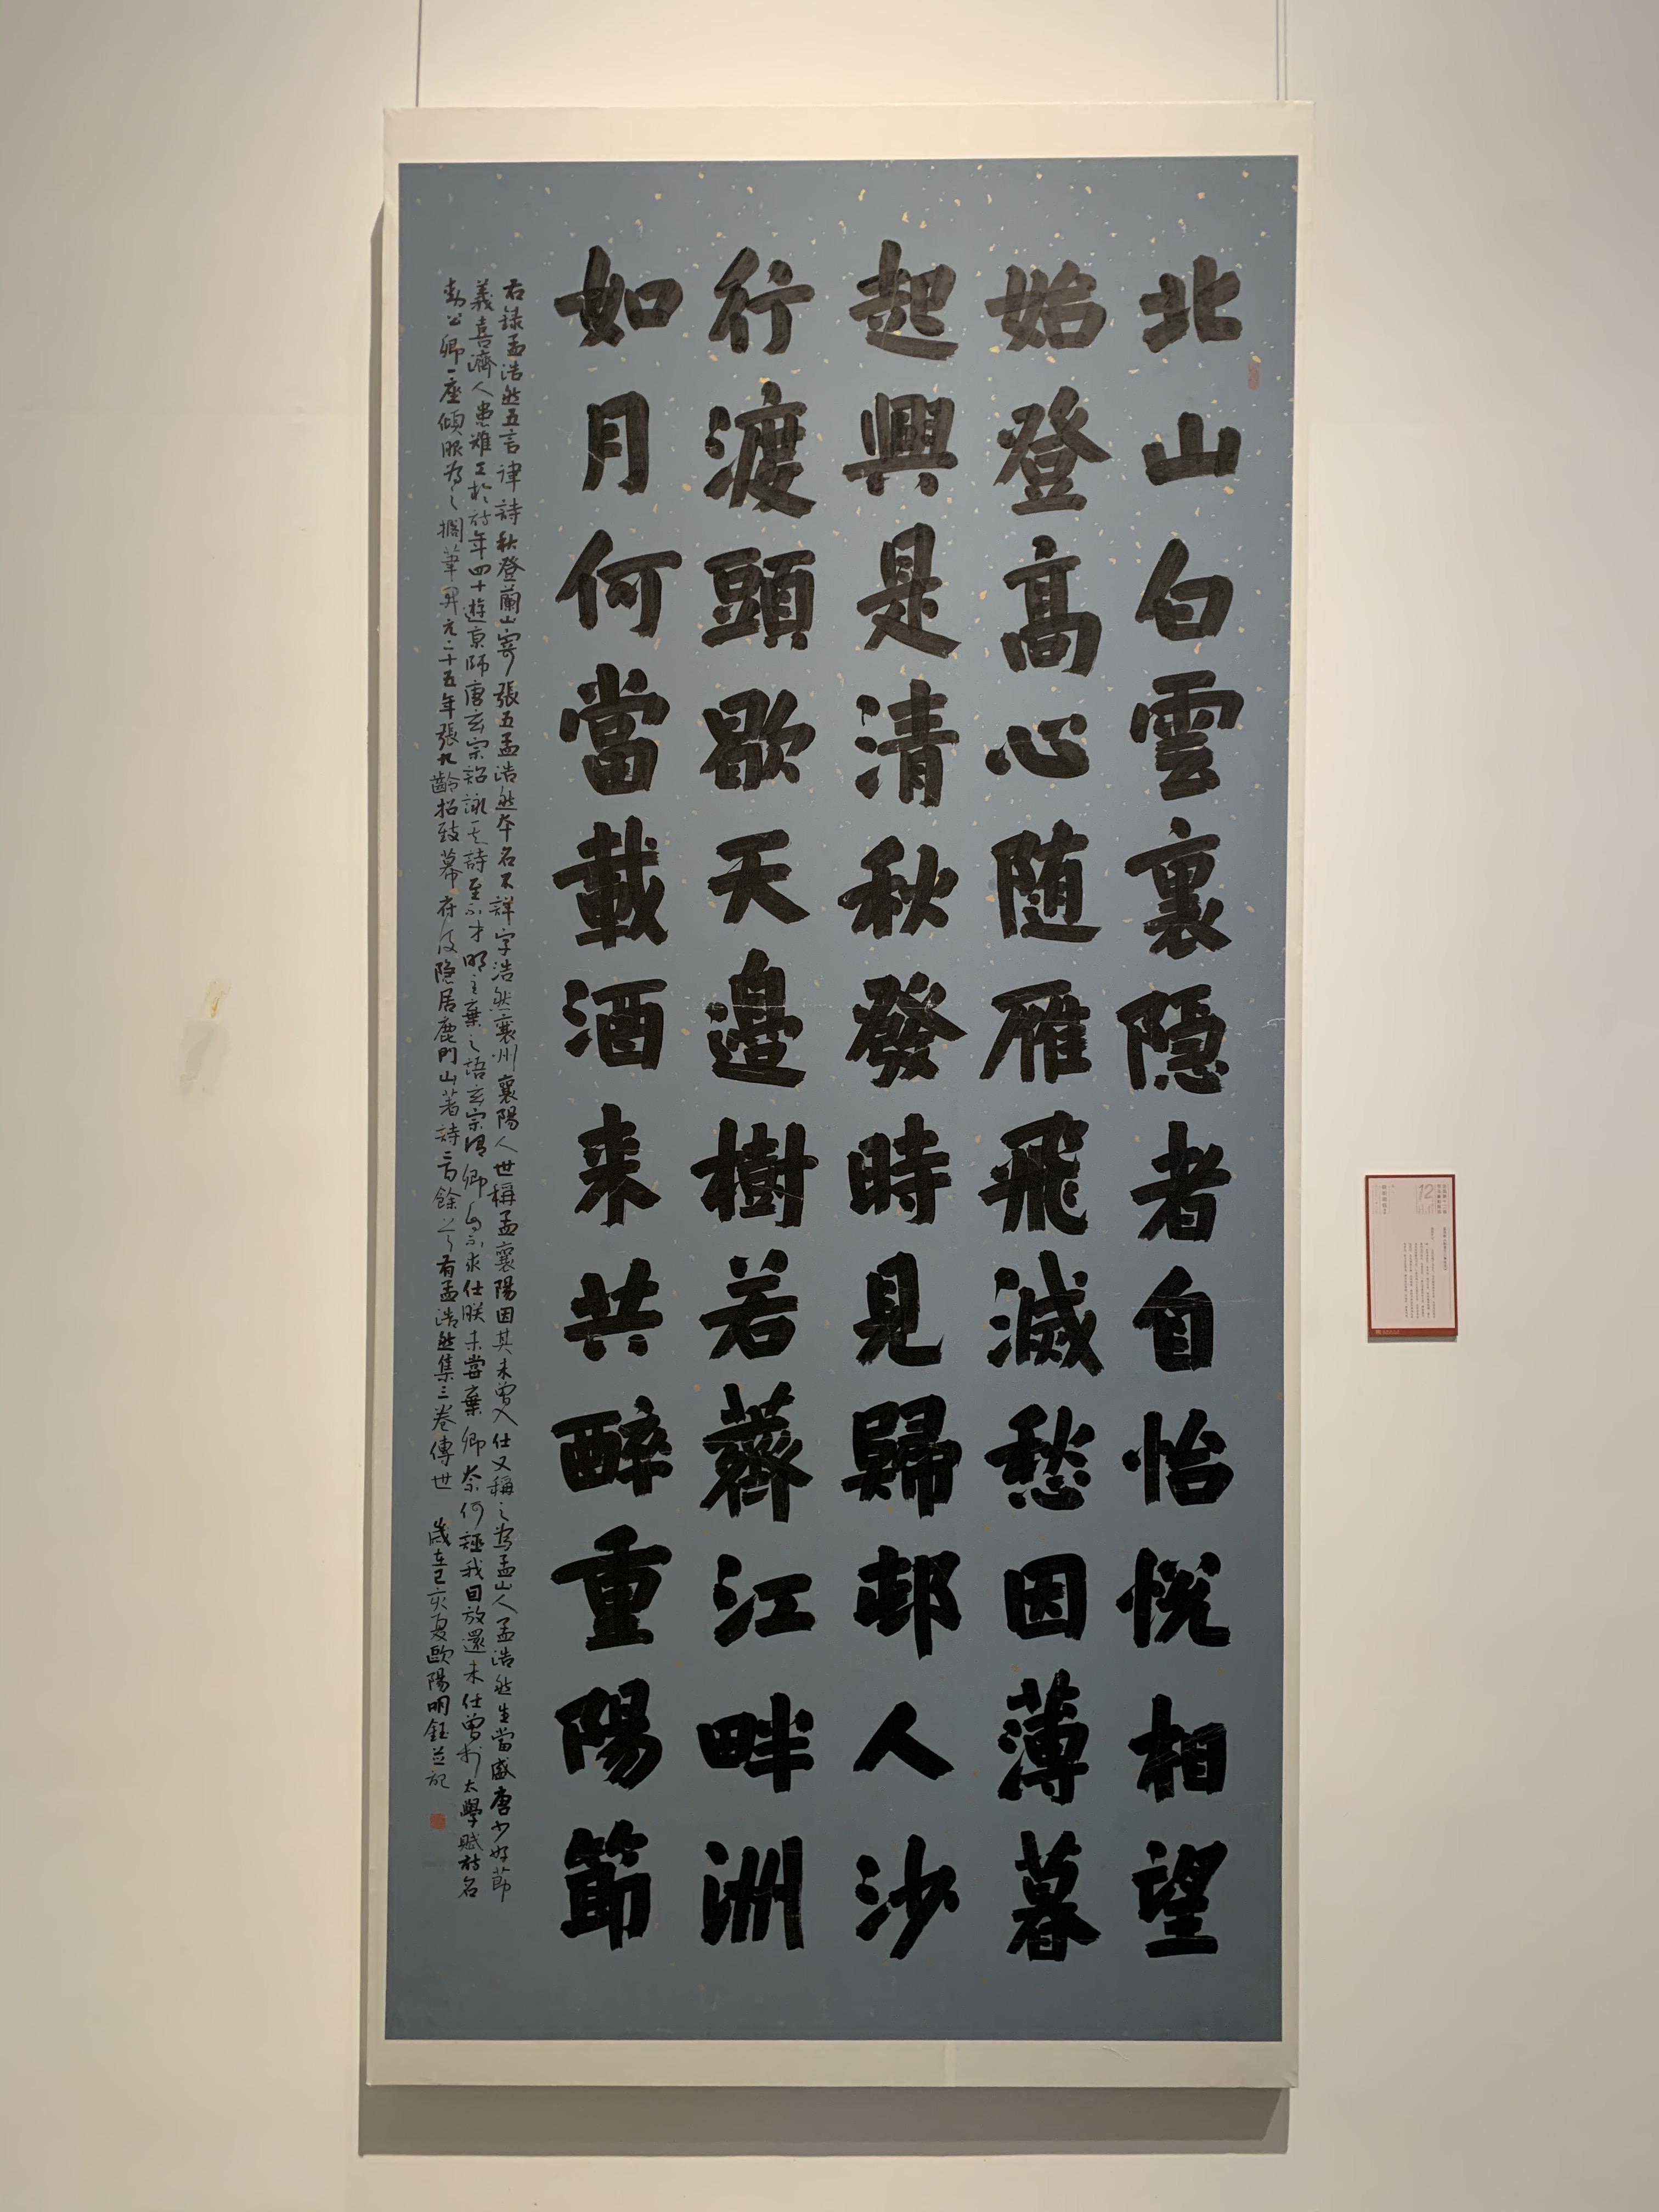 北山白雲裏隐者自怡悦相望
始登高心随雁飛滅愁因薄暮
起興是清秋發時見歸邨人沙
行渡頭歇天邊樹若薺江畔洲
如月何當載酒来共醉重陽節
右録孟浩然五言律詩秋登蘭山寄張五孟浩然本名不詳字浩然襄州襄陽人世稱孟襄陽因其未曾入仕又稱之為孟山人孟浩然生當盛唐少好節
義喜濟人患難工於詩年四十遊京師唐玄宗詔詠其詩至不才明主棄之語玄宗謂卿自不求仕朕未嘗棄卿奈何誣我因放還未仕曾於太學賦詩名
動公卿一座傾服為之擱筆開元二十五年張九齡招致幕府後隐居鹿門山著詩二百餘首有孟浩然集三卷傳世 歲在己亥夏歐陽明鈺並記
12